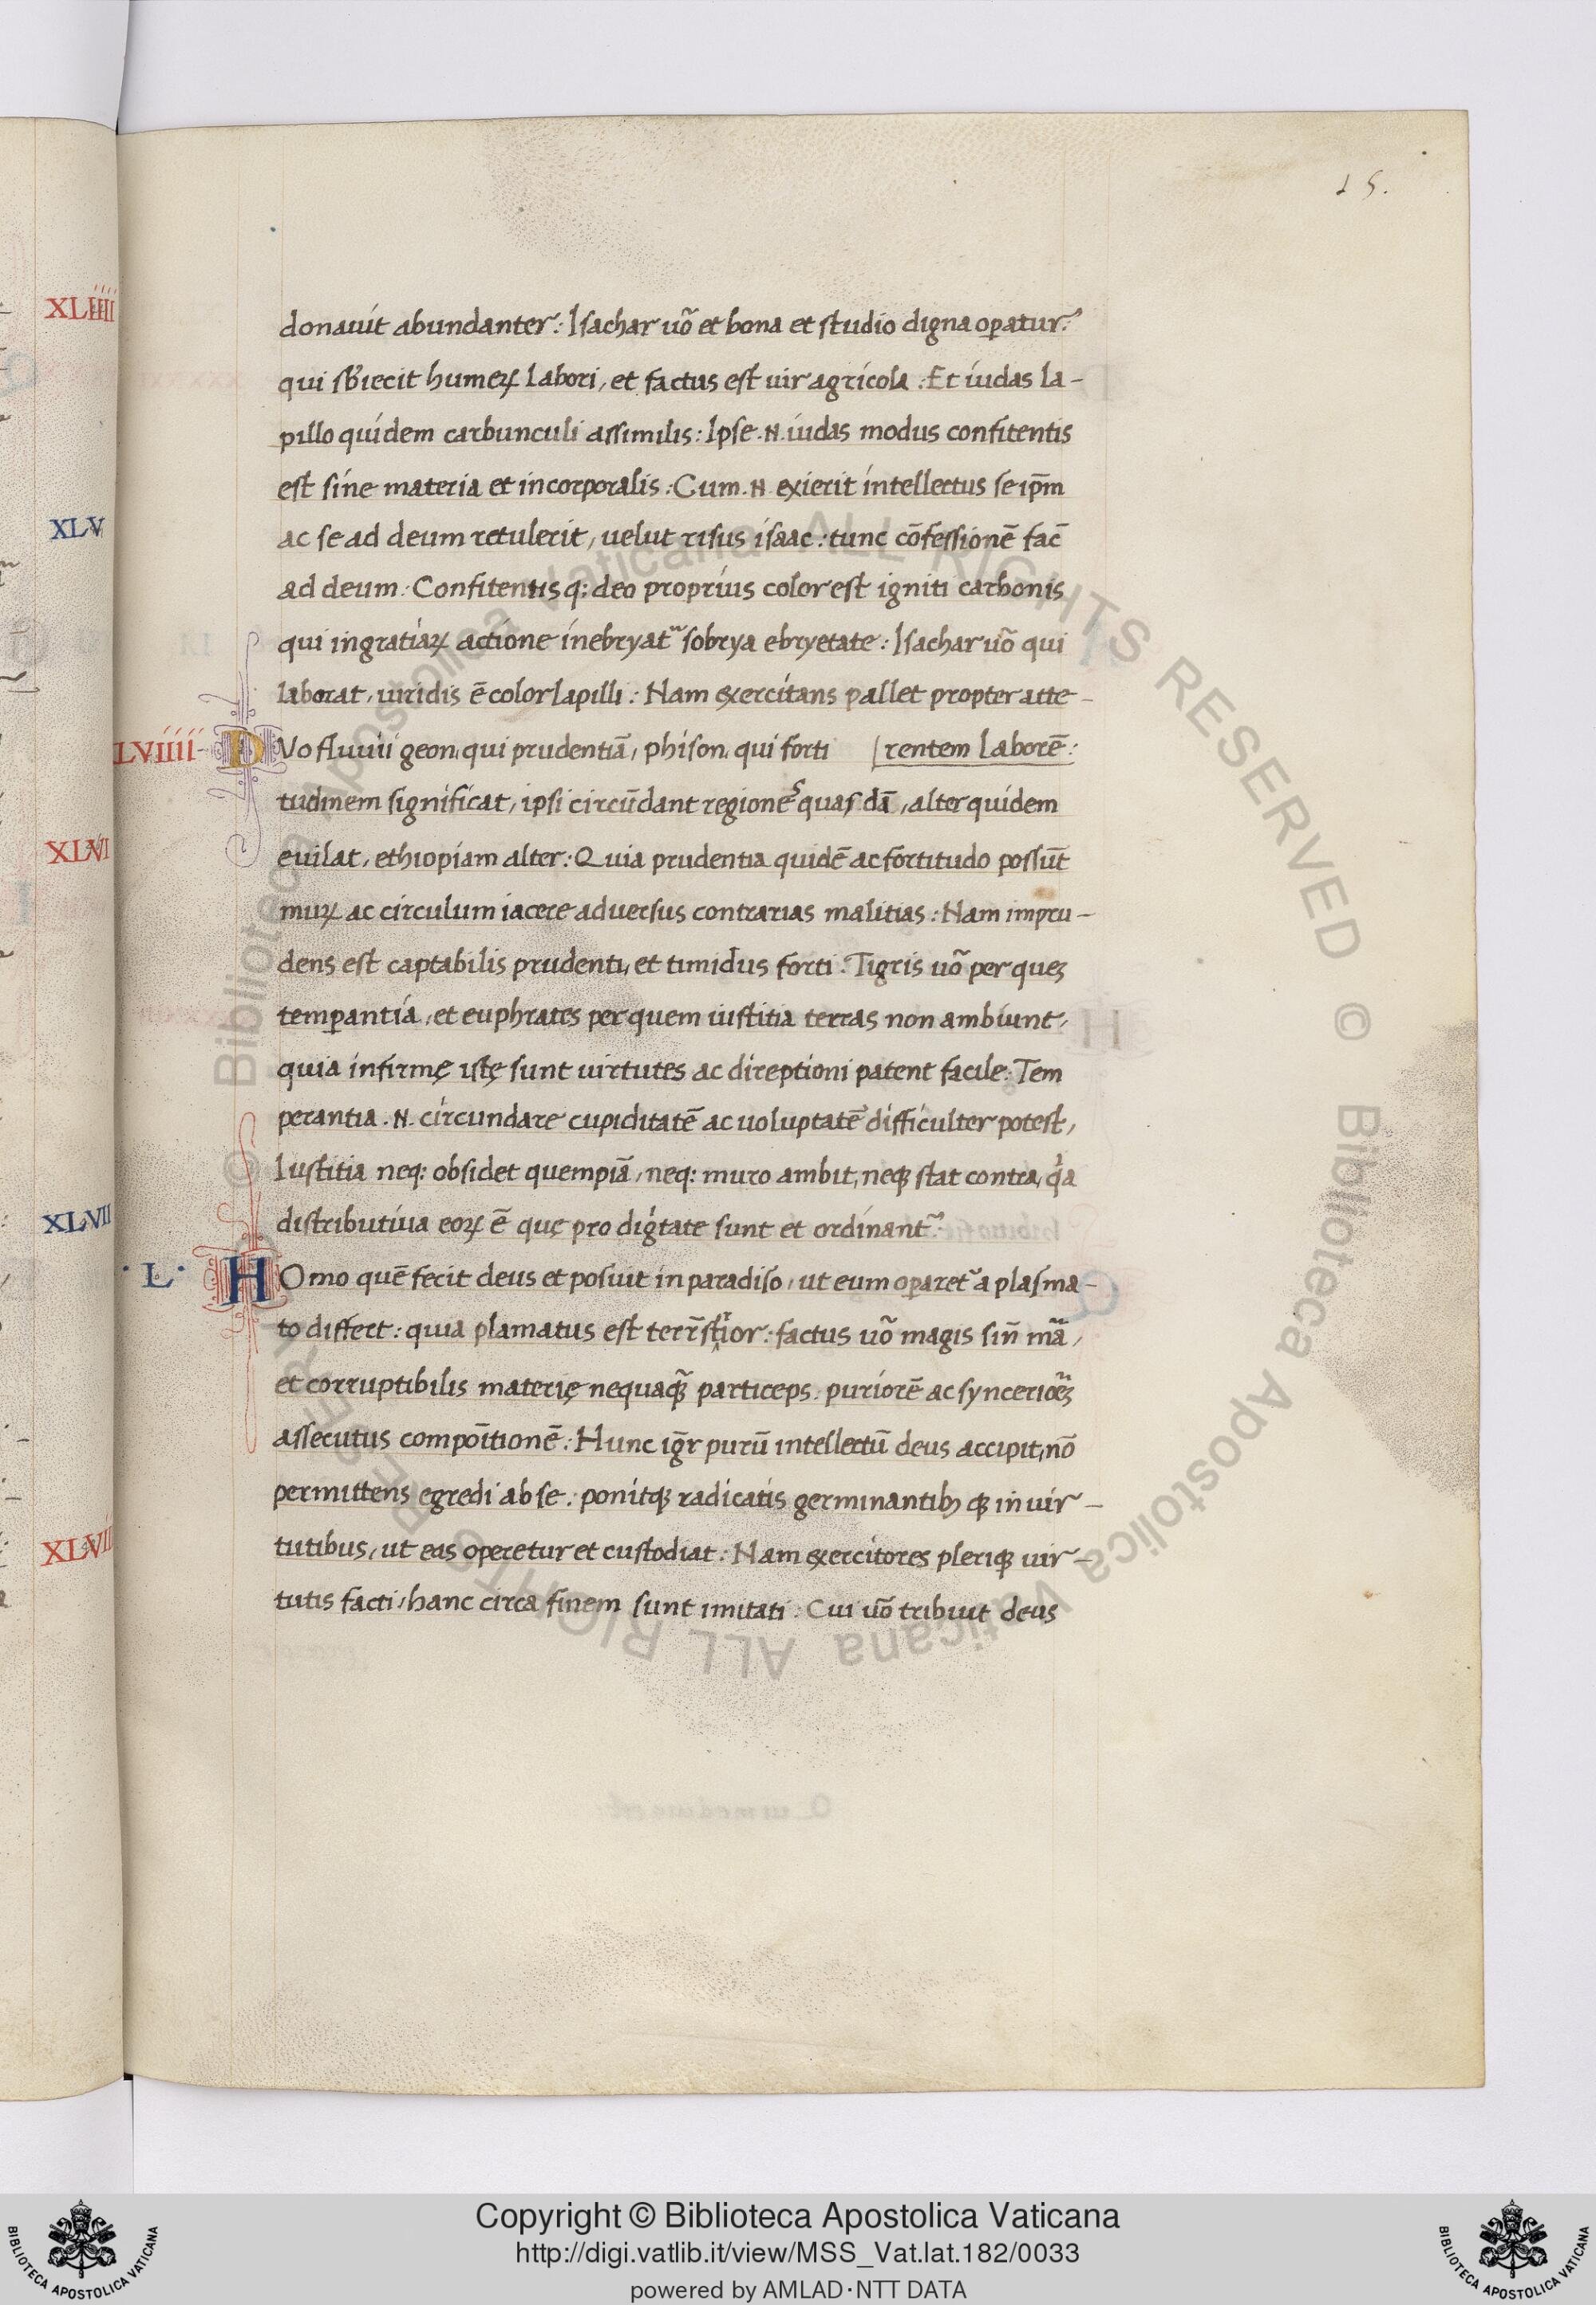 15.
donauit abundanter: Isachar uõ et bona et studio digna oꝑatur:
qui sb̃iecit humeꝝ labori, et factus est uir agricola : Et iudas la-
pillo quidem carbunculi assimilis: Ipse .N. iudas modus confitentis
est sine materia et incorporalis : Cum .N. exierit intellectus se ip̄m
ac se ad deum retulerit, uelut risus isaac : tunc cõfessionẽ fac̃
ad deum : Confitentis q: deo proprius color est igniti carbonis
qui in gratiaꝝ actione inebryat᷑ sobrya ebryetate : Isachar uõ qui
laborat, uiridis ẽ color lapilli : Nam exercitans pallet propter atte-
XLVIIII
DVo fluuii geon, qui prudentiã, phison, qui forti rentem laborẽ:
tudinem significat, ipsi circũdant regiones quas dã, alter quidem
euilat, ethiopiam alter : Quia prudentia quidẽ ac fortitudo possũt
muꝝ ac circulum iacere aduersus contrarias malitias : Nam impru-
dens est captabilis prudenti, et timidus forti : Tigris uõ per queꝫ
temꝑantia, et euphrates per quem iustitia terras non ambiunt,
quia infirmę istę sunt uirtutes ac direptioni patent facile : Tem
perantia .N. circundare cupiditatẽ ac uoluptatẽ difficulter potest,
Iustitia neq: obsidet quempiã, neq: muro ambit, neqꝫ stat contra, qͥa
distributiua eoꝝ ẽ quę pro digͥtate sunt et ordinant᷑:
.L.
HOmo quẽ fecit deus et posuit in paradiso, ut eum oꝑaret᷑ a plasma-
to differt : quia plamatus est terr̃strior : factus uõ magis sin̄ mã,
et corruptibilis materię nequaqꝫ̃ particeps, puriorẽ ac synceriorẽꝫ
assecutus compõitionẽ : Hunc igr̃ purũ intellectũ deus accipit, nõ
permittens egredi ab se : ponitqꝫ radicatis germinantibꝫ qꝫ in uir-
tutibus, ut eas operetur et custodiat : Nam exercitores pleriqꝫ uir-
tutis facti, hanc circa finem sunt imitati : Cui uõ tribuit deus
XLIIII
XLV
XLVI
XLVII
XLVII
© Biblioteca Apostolica Vaticana ALL RIGHTS RESERVED
© Biblioteca Apostolica Vaticana ALL RIGHTS RESER
Copyright © Biblioteca Apostolica Vaticana
http://digi.vatlib.it/view/MSS_Vat.lat.182/0033
powered by AMLAD·NTT DATA
BIBLIOTECA APOSTOLICA VATICANA
BIBLIOTECA APOSTOLICA VATICANA